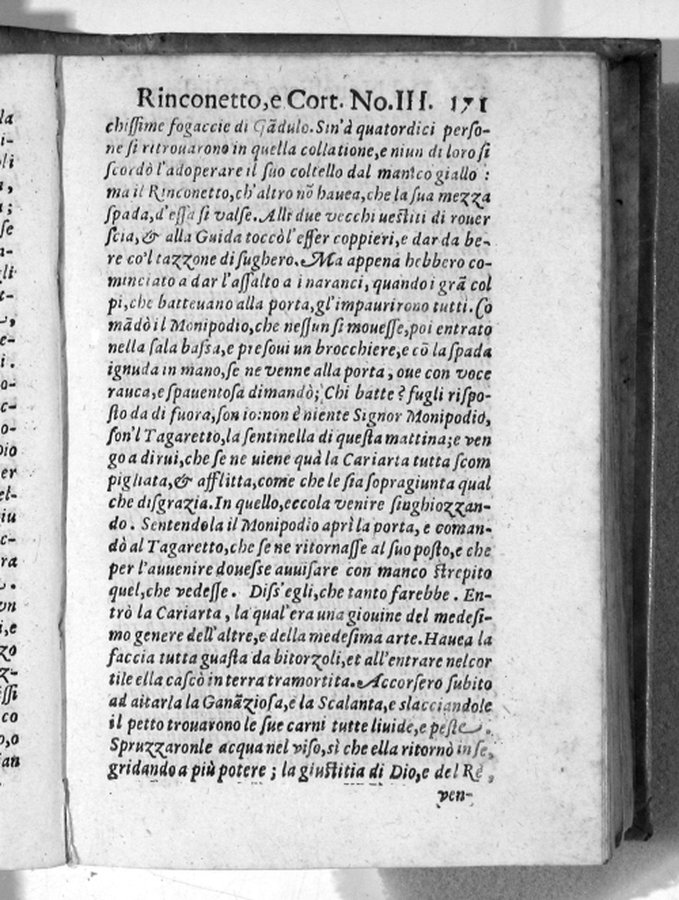 Rinconetto, e Cort. No. III. 171
chiſſime fogaccie di Gãdulo. Sin'à quatordici perſo-
ne ſi ritrouarono in quella collatione, e niun di loro ſi
ſcordò l'adoperare il ſuo coltello dal manico giallo :
ma il Rinconetto, ch'altro nõ hauea, che la ſua mezza
ſpada, d'eſſa ſi valſe. Alli due vecchi ueſtiti di rouer
ſcia, & alla Guida toccò l'eſſer coppieri, e dar da be-
re co'l tazzone di ſughero. Ma appena hebbero co-
minciato a dar l'aſſalto a i naranci, quando i grã col
pi, che batteuano alla porta, gl'impaurirono tutti. Co
mãdò il Monipodio, che neſſun ſi moueſſe, poi entrato
nella ſala baſſa, e preſoui un brocchiere, e cõ la ſpada
ignuda in mano, ſe ne venne alla porta, oue con voce
rauca, e ſpauentoſa dimandò; Chi batte ? fugli riſpo-
ſto da di fuora, ſon io: non è niente Signor Monipodio,
ſon'l Tagaretto, la ſentinella di queſta mattina; e ven
go a dirui, che ſe ne uiene quà la Cariarta tutta ſcom
pigliata, & afflitta, come che le ſia ſopragiunta qual
che diſgrazia. In quello, eccola venire ſinghiozzan-
do. Sentendola il Monipodio aprì la porta, e coman-
dò al Tagaretto, che ſe ne ritornaſſe al ſuo poſto, e che
per l'auuenire doueſse auuiſare con manco ſtrepito
quel, che vedeſse. Diſs'egli, che tanto farebbe. En-
trò la Cariarta, la qual'era una giouine del medeſi-
mo genere dell'altre, e della medeſima arte. Hauea la
faccia tutta guaſta da bitorzoli, et all'entrare nel cor
tile ella caſcò in terra tramortita. Accorſero ſubito
ad aitarla la Ganãzioſa, e la Scalanta, e slacciandole
il petto trouarono le ſue carni tutte liuide, e peſte.
Spruzzaronle acqua nel viſo, sì che ella ritornò in ſe,
gridando a più potere ; la giuſtitia di Dio, e del Rè,
ven-